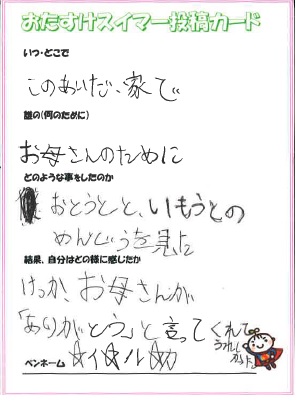 おたすけスイマー投稿カード
いつ・どこで
このあいだ、家で
誰の(何のために)
お母さんのために
どのような事をしたのか
おとうとと、いもうとの
めんどうを見た
結果、自分はどの様に感じたか
けっか、お母さんが
「ありがとう」と言ってくれて
うれし
かった
ペンネーム ☆イ☆ル☆カ